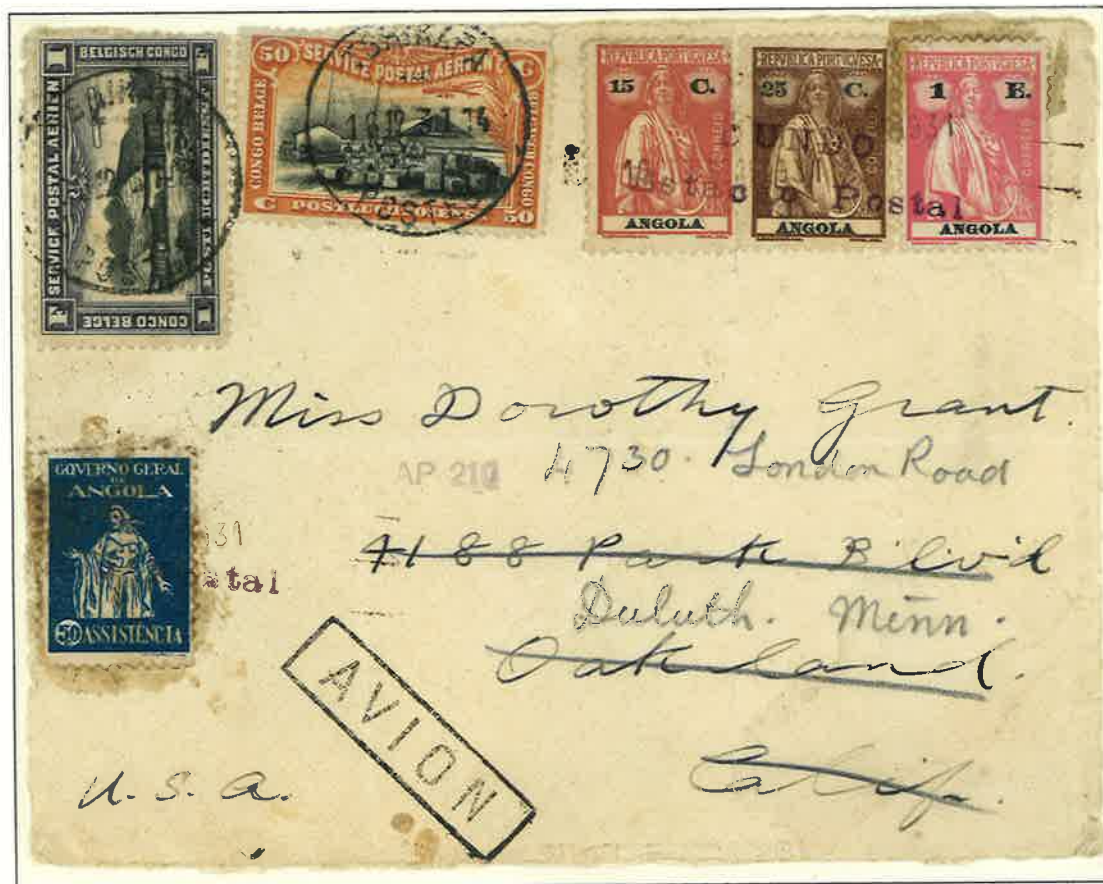 BELGISCH CONGO
1 F SERVICE POSTAL AERIEN 1 F
CONGO BELGE
50 SERVICE POSTAL AERIEN C
CONGO BELGE
BELGISCH CONGO
C POSTLUCHTDIENST 50
REPUBLICA PORTUGUESA
15 C.
CORREIO
ANGOLA
REPUBLICA PORTUGUESA
25 C.
CORREIO
ANGOLA
REPUBLICA PORTUGUESA
1 E.
CORREIO
ANGOLA
Postal
Miss Dorothy Grant.
AP 210
4730. London Road
1188 Park Bliv'd
Duluth. Minn.
Oakland.
Calif.
GOVERNO GERAL
DE
ANGOLA
50 ASSISTÊNCIA
931
stal
AVION
U. S. A.